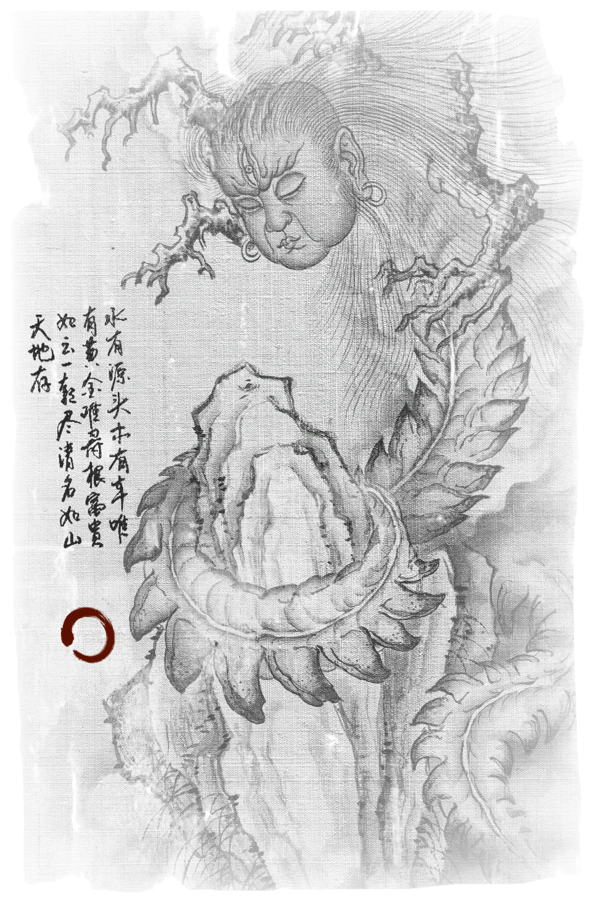 水有源头木有本唯
有黄金难根富贵
如云一朝尽清名如山
天地存